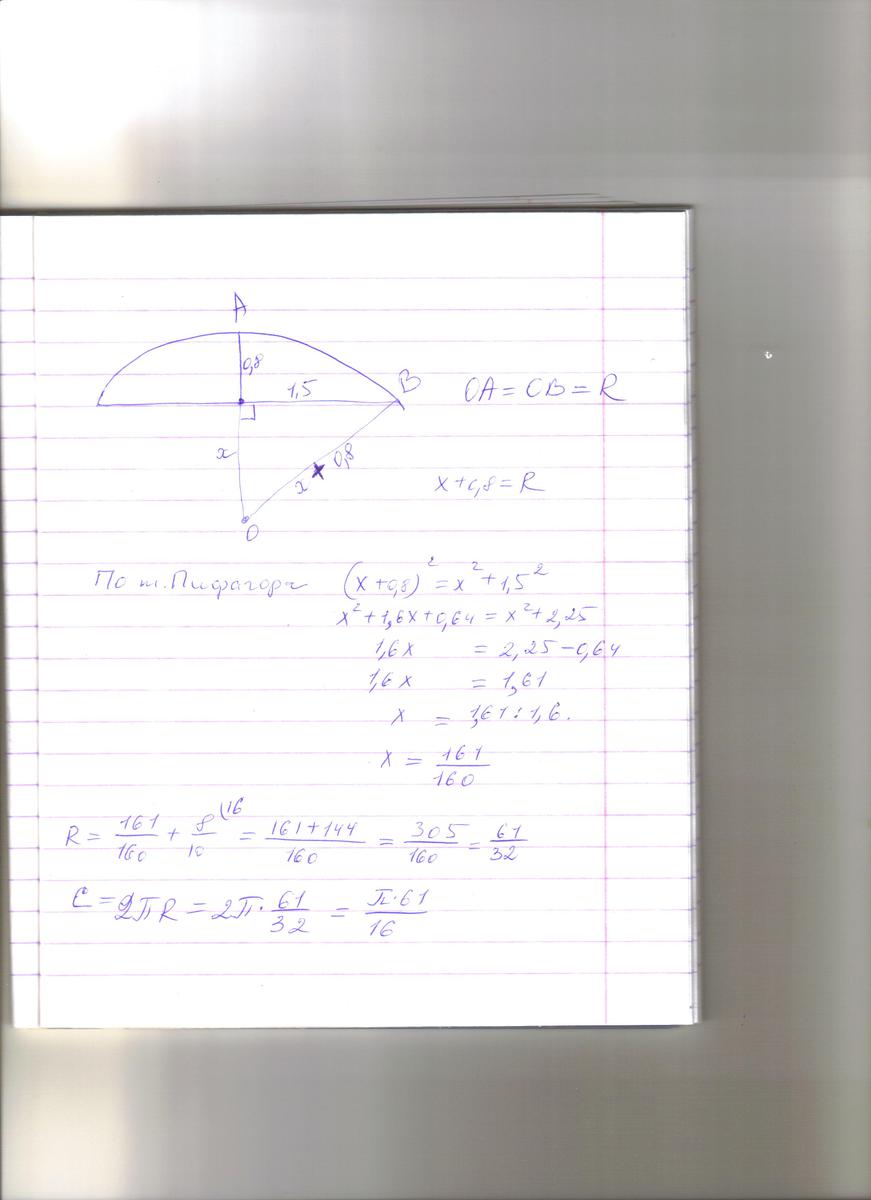 A
0,8
1,5
B
OA = OB = R
x
0,8
x
x + 0,8 = R
O
По т. Пифагора (x + 0,8)² = x² + 1,5²
x² + 1,6x + 0,64 = x² + 2,25
1,6x = 2,25 - 0,64
1,6x = 1,61
x = 1,61 : 1,6.
x = 161/160
R = 161/160 + 8/10 (16 = 161+144/160 = 305/160 = 61/32
C = 2πR = 2π · 61/32 = π·61/16